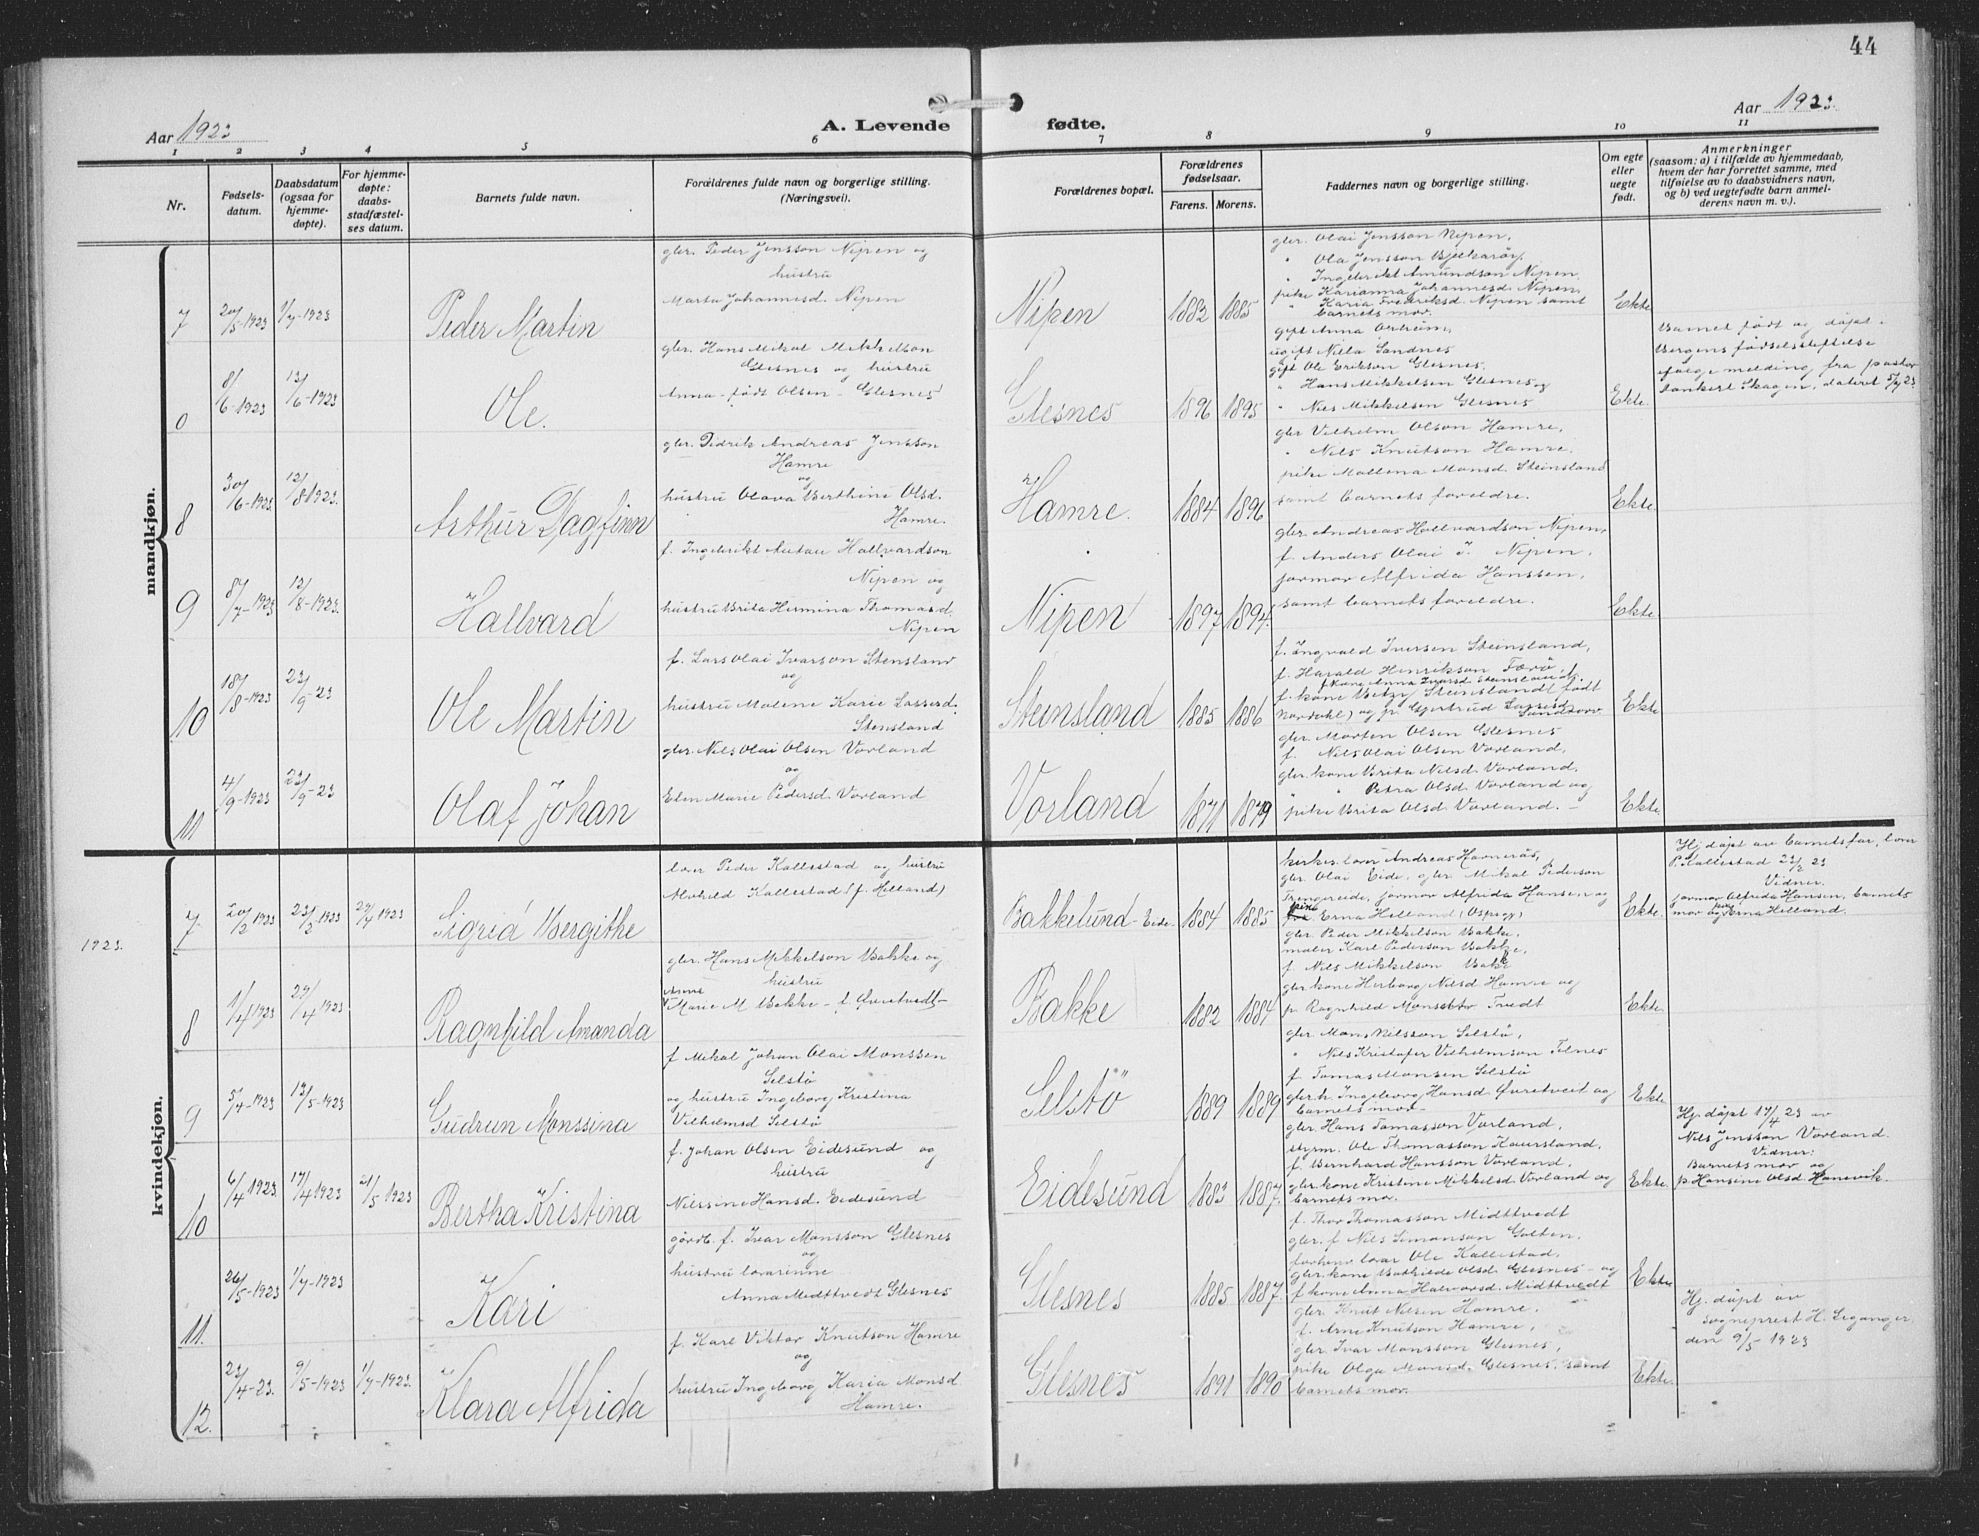 44
Aar 1923
A. Levende fødte.
Aar 1923.
1 2 3 4 5 6 7 8 9 10 11
Nr.
Fødsels-
datum.
Daabsdatum
(ogsaa for
hjemme-
døpte).
For hjemme-
døpte:
daabs-
stadfæstel-
ses datum.
Barnets fulde navn.
Forældrenes fulde navn og borgerlige stilling.
(Næringsvei).
Forældrenes bopæl.
Forældrenes
fødselsaar.
Farens. Morens.
Faddernes navn og borgerlige stilling.
Om egte
eller
uegte
født.
Anmerkninger
(saasom: a) i tilfælde av hjemmedaab,
hvem der har forrettet samme, med
tilføielse av to daabsvidners navn,
og b) ved uegtefødte barn anmel-
derens navn m. v.).
mandkjøn.
7 20/5-1923 1/7-1923 Peder Martin
gbr. Peder Jensson Nipen og
hustru
Marta Johannesd. Nipen
Nipen 1882 1885
gbr. Olai Jensson Nipen,
" Ola Jensson Bjelkarøy,
" Ingebrikt Amundson Nipen,
pike Karianna Johannesd. Nipen,
" Karia Fredriksd. Nipen samt
barnets mor.
Ekte
0 8/6-1923 13/6-1923 Ole.
gbr. Hans Mikal Mikkelson
Glesnes og hustru
Anna - født Olsen - Glesnes
Glesnes 1896 1895
gift Anna
ugift Nilla Sandnes
gift Ole Erikson Glesnes,
" Hans Mikkelsen Glesnes og
" Nils Mikkelsen Glesnes
Ekte.
Barnet født og døpt i
Bergens fødselsstiftelse
følge melding fra pastor
Skagen, dateret 5/7 23
8 30/6-1923 12/8-1923. Arthur Dagfinn
gbr. Didrik Andreas Jensson
Hamre
og
hustru Olava Berthine Olsd.
Hamre.
Hamre. 1884 1896
gbr Vilhelm Olson Hamre,
" Nils Knutson Hamre,
pike Mallena Monsd. Steinsland
samt barnets foreldre.
Ekte.
9 8/7-1923 12/8-1923. Hallvard
f. Ingebrikt Hallvardson
Nipen og
hustru Brita Hermina Thomasd
Nipen
Nipen 1897 1894.
gbr. Andreas Hallvardson Nipen,
f. Anders Olai J. Nipen,
jormor Alfrida Hanssen,
samt barnets foreldre.
Ekte.
10 18/8-1923 23/9-23 Ole Martin
f. Lars Olai Ivarson Stensland
og
hustru Malene Karie Lassesd.
Stensland
Steinsland 1885 1886
f. Ingvald Iversen Steinsland,
f. Harald Henrikson Færø,
f. kone Anna Ivarsd. Steinsland,
f. kone Betzy Steinslandt født
Nordahl) og p. Gjertrud Lassesd
Ekte
11 4/9-1923 23/9-23 Olaf Johan
gbr. Nils Olai Olsen Vorland
og
Elen Marie Pedersd. Vorland
Vorland 1871 1879
gbr. Morten Olsen Glesnes
f. Nils Olai Olsen Vorland,
gbr. kone Brita Nilsd. Vorland,
" " Petra Olsd. Vorland og
pike Brita Olsd. Vorland. -
Ekte.
kvindekjøn.
1923.
7 20/2 1923 25/2-1923 29/4 1923 Sigrid Bergithe
lærer Peder Kallestad og hustru
Alvhild Kallestad (f. Helland)
Bakkelund-Eide. 1884 1885
kirkes. lærer Andreas Havnerås,
gbr. Olai Eide, gbr Mikal Pederson
Trengereide, jormor Alfrida Hansen og
pike Erna Helland (Ospøy)
Ekte.
Hj. døpt av barnets far, lærer
P. Kallestad 25/2 23
Vidner.
jormor Alfrida Hansen, barnets
mor og Erna Helland.
8 1/4 1923 29/4 1923 Ragnhild Amanda
gbr. Hans Mikkelson Bakke og
hustru
Anne
Marie M Bakke - f. Øvretvedt-
Bakke 1882 1884
gbr. Peder Mikkelson Bakke,
maler Karl Pederson Bakke,
f. Nils Mikkelson Bakke
gbr kone Herborg Nilsd Hamre og
p. Ragnhild Tvedt
Ekte.
9 5/4-1923 13/5-1923 Gudrun Monssina
f Mikal Johan Olai Monssen
Selstø
og hustru Ingeborg Kristina
Vilhelmsd Selstø
Selstø 1889 1889
gbr Mons Nilsson Selstø,
" Nils Kristofer Vilhelmson Telnes
f Tomas Monsen Selstø
gbr.h. Ingeborg Hansd Øvretveit og
barnets mor-
Ekte.
10 6/4 1923. 17/4 1923 21/5 1923 Bertha Kristina
f. Johan Olsen Eidesund og
hustru
Nilssine Hansd. Eidesund
Eidesund 1883 1887.
gbr. Hans Tomasson Vorland,
styrm. Ole Thomasson Kaursland,
f. Bernhard Hansson Vorland,
gbr. kone Kristine Mikkelsd Vorland og
barnets mor.
Ekte.
Hj. døpt 17/4 23 av
Nils Jensson Vorland.
Vidner:
Barnets mor og
p. Hansine Olsd Hansvik.
11. 26/5-1923 1/7-1923 Kari
gårdb. f. Ivar Monsson Glesnes
og
hustru lærerinne
Anna Midttvedt Glesnes
Glesnes 1885 1887.
f. Thor Thomasson Midttvedt
gbr. f Nils Simonson Golten,
forhenv lærer Ole Kallestad,
gbr. kone Bathilde Olsd Glesnes - og
f. kone Anna Halvorsd. Midttvedt
Ekte
12. 23/4-23. 9/5-1923 1/7-1923. Klara Alfrida
f. Karl Viktor Knutson Hamre
og
hustru Ingeborg Karia Monsd.
Hamre.
Glesnes 1891 1890
gbr. Knut Nilsen Hamre,
f. Arne Knutson Hamre,
gbr. Ivar Monsson Glesnes,
pike Olga Monsd. Glesnes, samt
barnets mor.
Ekte.
Hj. døpt av
sogneprest H. Leganger
den 9/5 1923